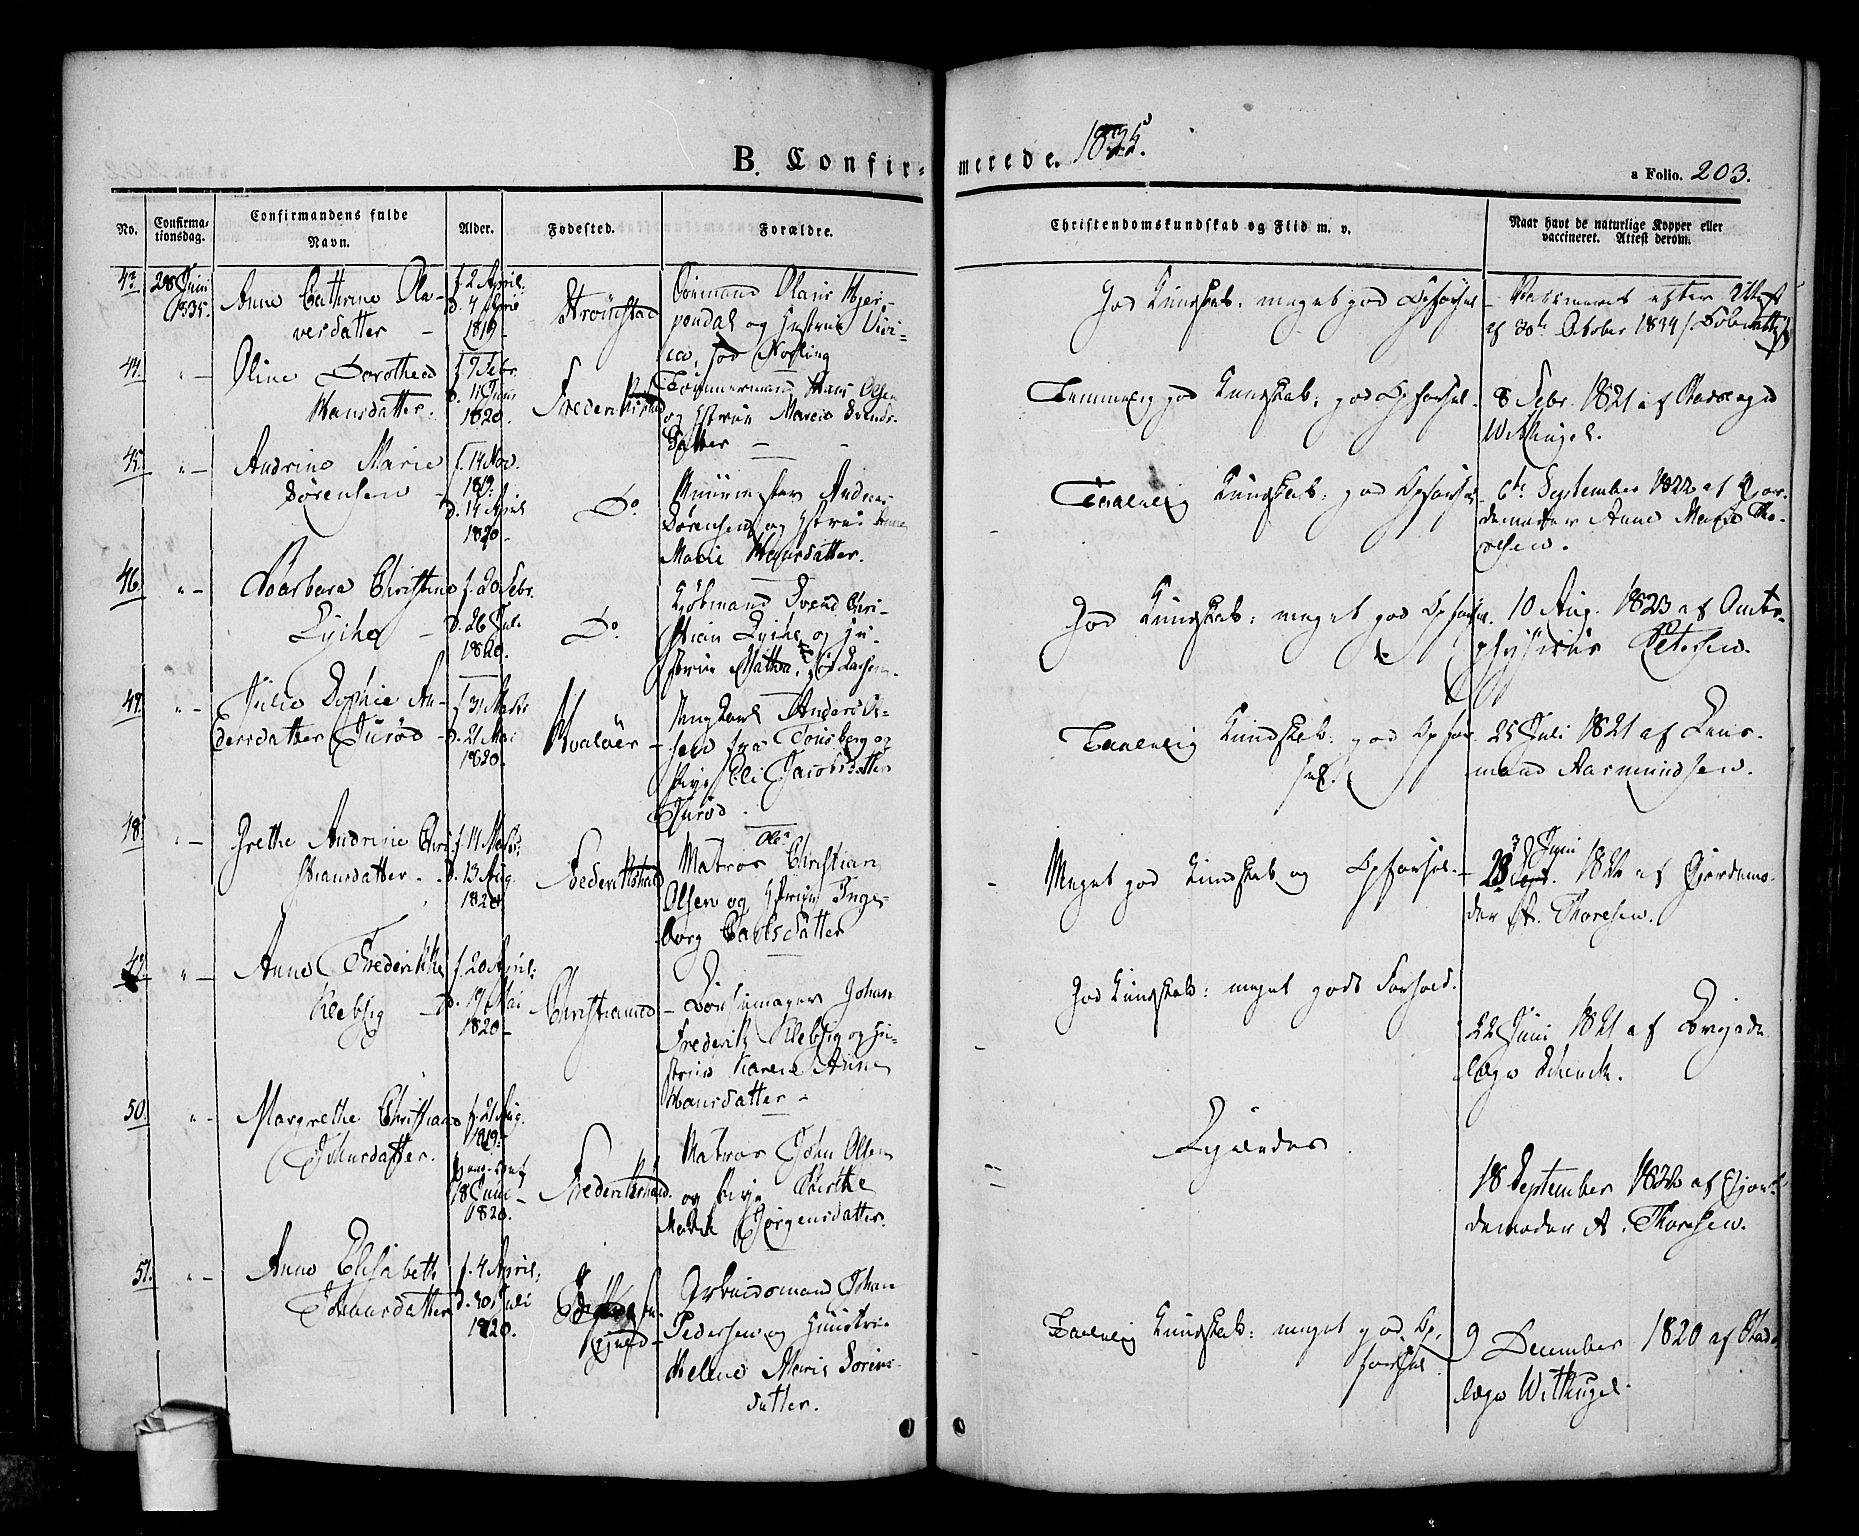 B. Confir-
merede. 1835.
a Folio. 203.
No.
Confirma-
tionsdag.
Confirmandens fulde
Navn.
Alder.
Fødested.
Forældre.
Christendomskundskab og Flid m. v.
Naar havt de naturlige Kopper eller
vaccineret. Attest derom.
43.
28 Juni
1835.
Anne Cathrine Ola-
versdatter
f. 2 April
d. 4
1819
Strömstad
Olaus
og Hustrue
fød
God Kundskab: meget god Opførsel
Vaccineret efter Attest
af 30te October 1834
44.
" —
Oline Dorothea
Hansdatter.
f. 7 Febr.
d. 11 Juni
1820.
Frederikstad
Tømmermand Hans Olsen
og Hstrue Maria Svends-
datter
Temmelig god Kundskab: god Opførsel
8 Febr. 1821 af
Withugel.
45
" —
Andrine Marie
Sørensen
f. 14 Nov.
1819:
d. 14 April
1820
Do.
Andreas
Sørensen og Hstrue Anne
Marie Hansdatter.
Taalelig Kundskab: god Opførsel
6te September 1822 af Gjor-
demoder Anne Marie Tho-
resen.
46.
" —
Barbara Christine
Lyche
f. 20 Febr.
d. 26 Juli
1820.
Do.
Kjøbmand Svend Chri-
stian Lyche og Hu-
strue
God Kundskab: meget god Opførsel.
10 Aug. 1823 af Amts-
physicus Petersen.
" —
Julie Sophie An-
dersdatter Jurød
f. 31 Marts
d. 21 Mai
1820.
Hvaløer
Ungkarl Anders Ol-
sen fra Tønsberg og
Pige Eli Jacobsdatter
Jurød.
Taalelig Kundskab: god Opfør-
sel.
25 Juli 1821 af Lens-
mand Aasmundsen.
48
" —
Grethe Andrine Chri-
stiansdatter
f. 11 Marts
d. 13 Aug.
1820
Frederikstad
Ole
Matros Christian
Olsen og Hstrue Inge-
borg Carlsdatter
Meget god Kundskab og Opførsel.
Juni
1822 af Gjordemo-
der A. Thoresen.
" —
Anne Frederikke
Klebsig
f. 20 April:
d. 17 Mai
1820
Christiansand
Johan
Frederik Klebsig og Hu-
strue Karen Anne
Hansdatter
God Kundskab: meget godt Forhold.
22 Juni 1821 af Brigade-
læge Schenck.
50.
" -
Margrethe Christiane
Johnsdatter.
f. 21 Aug.
1819:
18 Juni
1820.
Frederikstad.
Matros John Olsen
og Pige Birthe
Marie Jørgensdatter.
Ligeledes.
18 September 1822 af Gjor-
demoder A. Thoresen.
51.
" -
Anne Elisabeth
Johansdatter
f. 4 April;
d. 30 Juli
1820.
Arbeidsmand Johan
Pedersen og Huustrue
Helene Marie Sørens-
datter.
Taalelig Kundskab: meget god Op-
førsel
9 December 1820 af Stads-
læge Withugel.